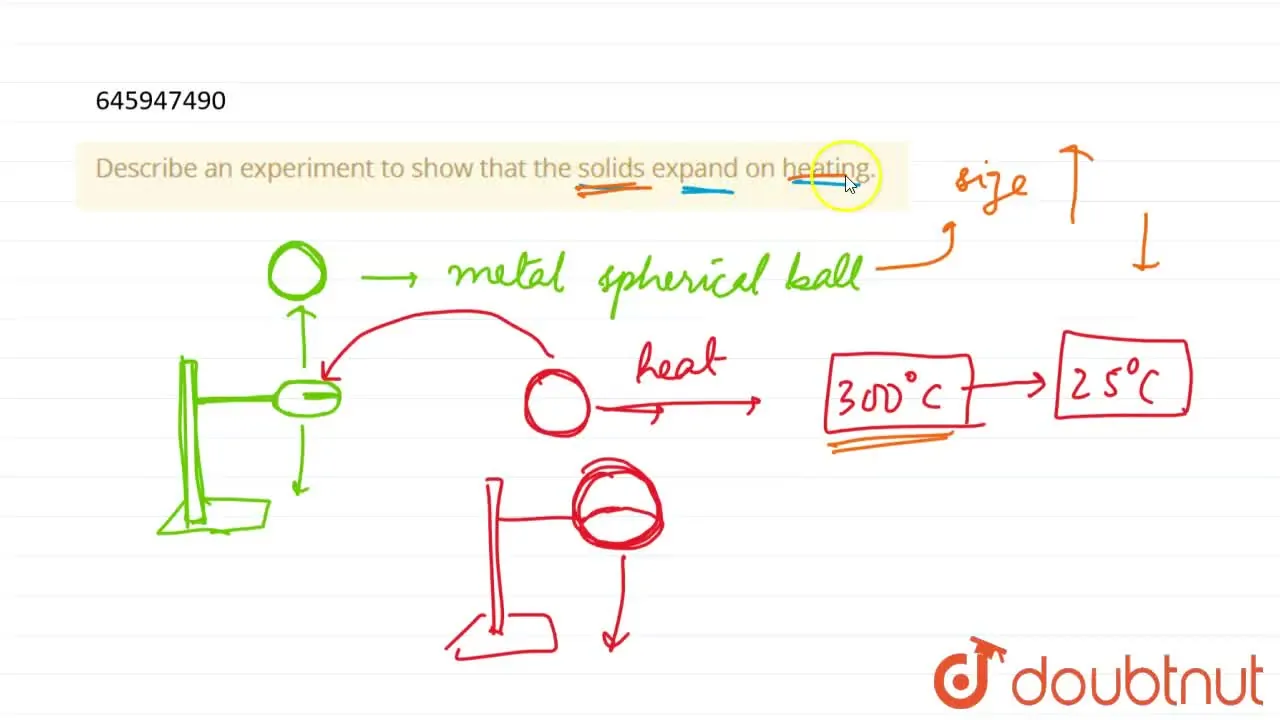 645947490
Describe an experiment to show that the solids expand on heating.
size
metal spherical ball
heat
300°C
25°C
doubtnut